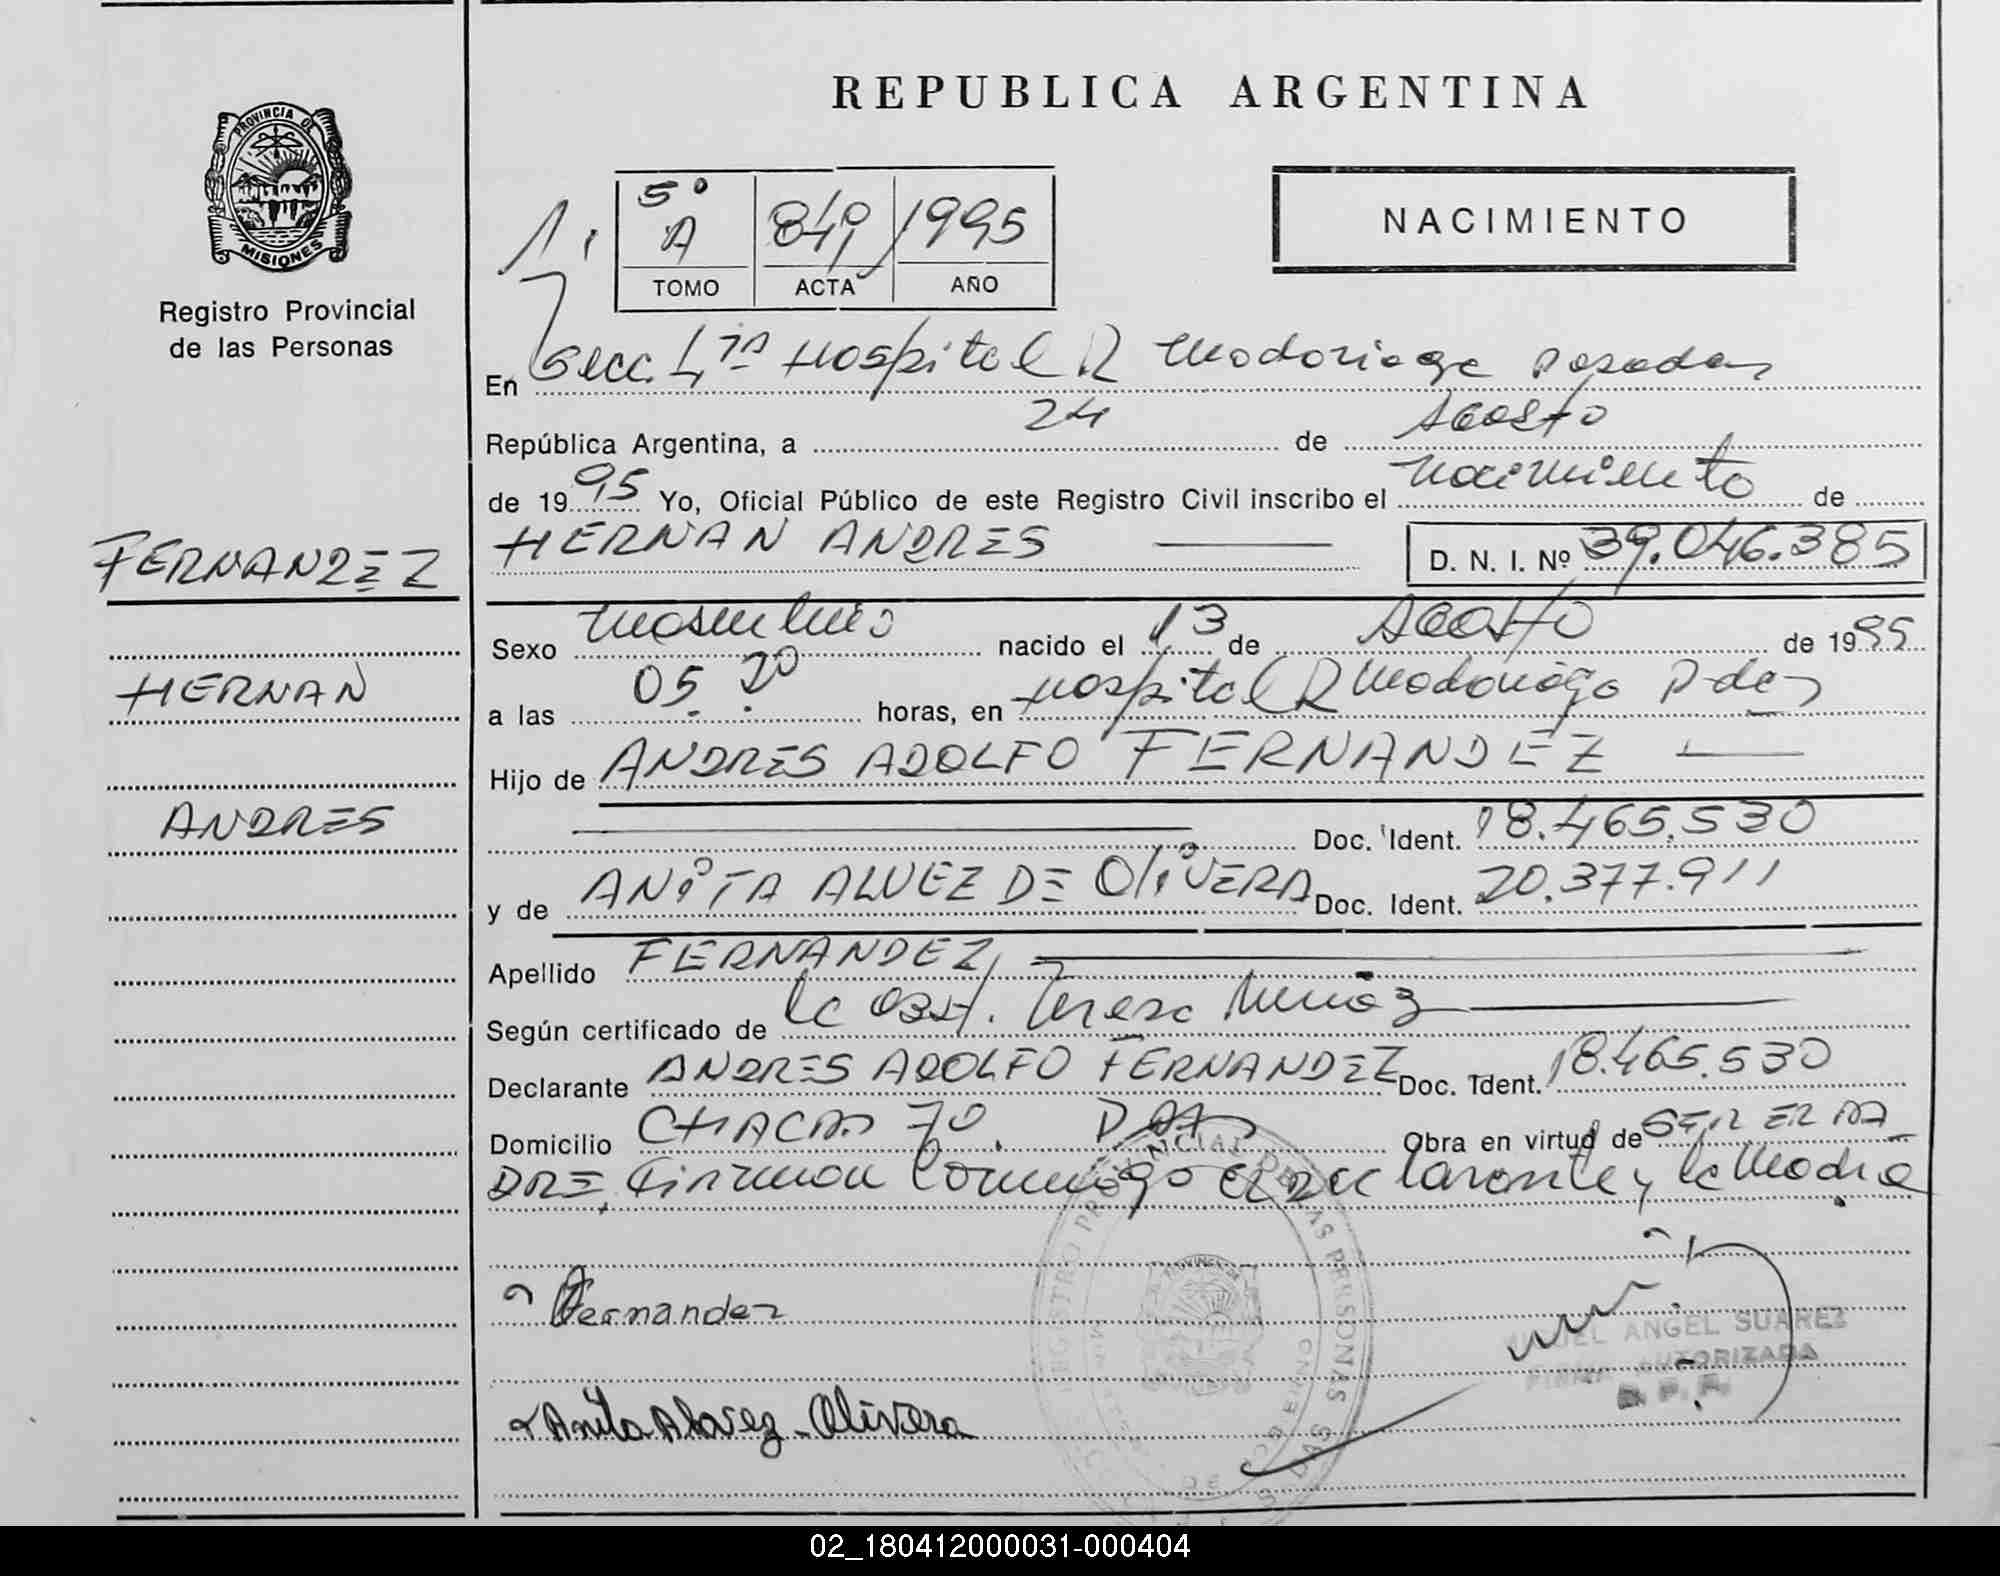 REPUBLICA ARGENTINA
PROVINCIA DE
MISIONES
Registro Provincial
de las Personas
NACIMIENTO
5º
A 849 1995
TOMO ACTA AÑO
En Secc. 4ta Hospital R Madariaga Posadas
República Argentina, a 24 de Agosto
de 1995 Yo, Oficial Público de este Registro Civil inscribo el nacimiento de
HERNAN ANDRES D. N. I. Nº 39.046.385
FERNANDEZ
HERNAN
ANDRES
Sexo masculino nacido el 13 de Agosto de 1995
a las 05.20 horas, en Hospital R Madariaga P-das
Hijo de ANDRES ADOLFO FERNANDEZ
Doc. Ident. 18.465.530
y de ANITA ALVEZ DE OLIVERA Doc. Ident. 20.377.911
Apellido FERNANDEZ
Según certificado de la Obst. Teresa Muñoz
Declarante ANDRES ADOLFO FERNANDEZ Doc. Ident. 18.465.530
Domicilio CHACRA 70. Obra en virtud de SER EL PA
DRE, Firman Conmigo el declarante y la Madre
REGISTRO PROVINCIAL DE LAS PERSONAS
PROVINCIA DE
Fernandez
MIGUEL ANGEL SUAREZ
FIRMA AUTORIZADA
Anita Alvez - Olivera
02_180412000031-000404